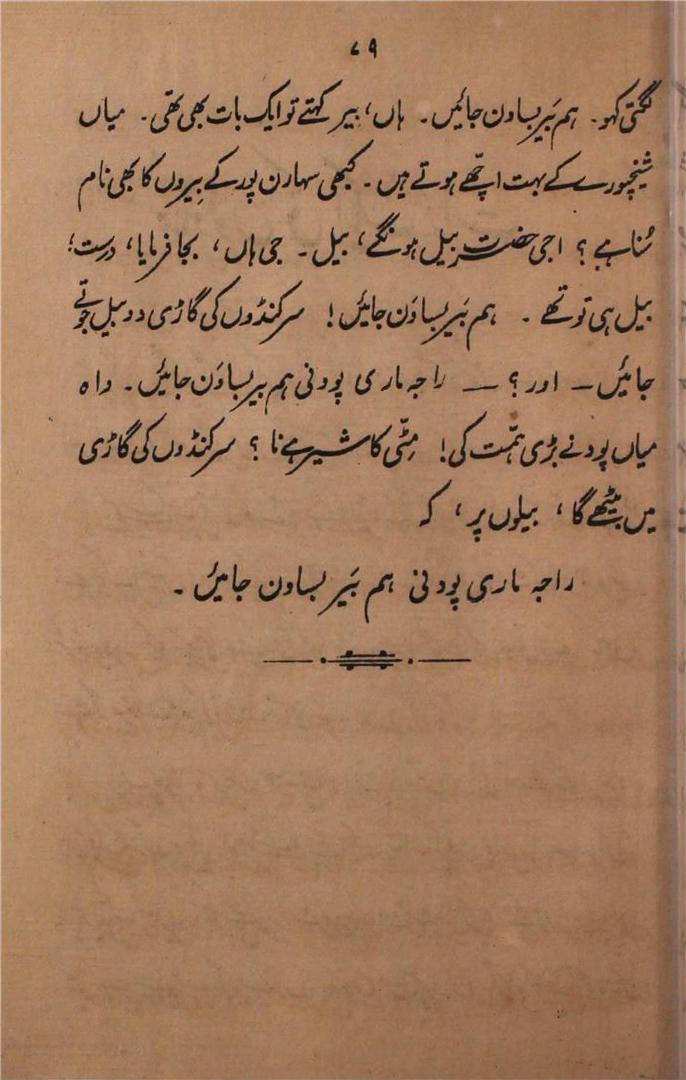 ۷۹
لگتی کہو۔ ہم بَیر بساون جائیں۔ ہاں، بیر کہتے تو ایک بات بھی تھی۔ میاں
شیخپورے کے بہت اچّھے ہوتے ہیں۔ کبھی سہارن پور کے بِیروں کا بھی نام
سُنا ہے؟ اجی حضرت بیل ہونگے، بیل۔ جی ہاں، بجا فرمایا، درست؛
بیل ہی تو تھے۔ ہم بَیر بساوَن جائیں! سرکنڈوں کی گاڑی دو دو بیل جوتے
جائیں۔ اور؟ — راجہ ماری پودنی ہم بیر بساوَن جائیں۔ واہ
میاں پودنے بڑی ہمّت کی! مٹّی کا شیر ہے نا؟ سرکنڈوں کی گاڑی
میں بیٹھے گا، بیلوں پر، کہ
راجہ ماری پودنی ہم بَیر بساون جائیں۔